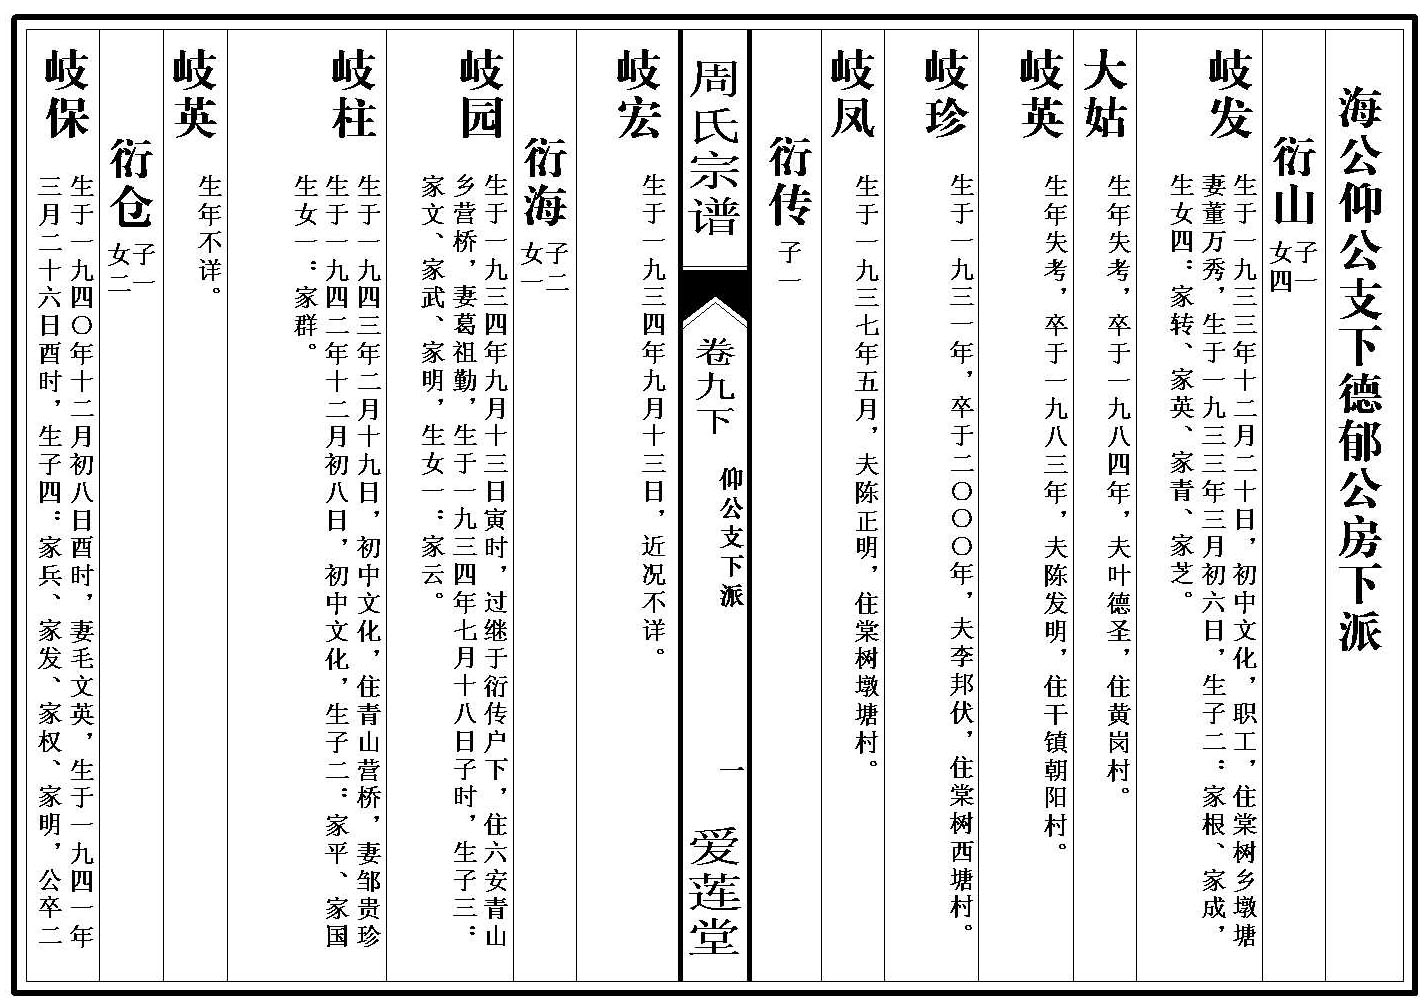 海公仰公支下德郁公房下派
衍山
子一
女四
岐发
生于一九三三年十二月二十日，初中文化，职工，住棠树乡墩塘
妻董万秀，生于一九三三年三月初六日，生子二：家根、家成，
生女四：家转、家英、家青、家芝。
大姑
生年失考，卒于一九八四年，夫叶德圣，住黄岗村。
岐英
生年失考，卒于一九八三年，夫陈发明，住干镇朝阳村。
岐珍
生于一九三一年，卒于二〇〇〇年，夫李邦伏，住棠树西塘村。
岐凤
生于一九三七年五月，夫陈正明，住棠树墩塘村。
衍传
子一
周氏宗谱
卷九下
仰公支下派
一
爱莲堂
岐宏
生于一九三四年九月十三日，近况不详。
衍海
子二
女一
岐园
生于一九三四年九月十三日寅时，过继于衍传户下，住六安青山
乡营桥，妻葛祖勤，生于一九三四年七月十八日子时，生子三：
家文、家武、家明，生女一：家云。
岐柱
生于一九四三年二月十九日，初中文化，住青山营桥，妻邹贵珍
生于一九四二年十二月初八日，初中文化，生子二：家平、家国
生女一：家群。
岐英
生年不详。
衍仓
子一
女二
岐保
生于一九四〇年十二月初八日酉时，妻毛文英，生于一九四一年
三月二十六日酉时，生子四：家兵、家发、家权、家明，公卒二